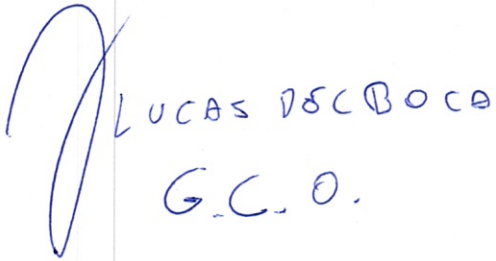 LUCAS DECBOCA
G.C.O.